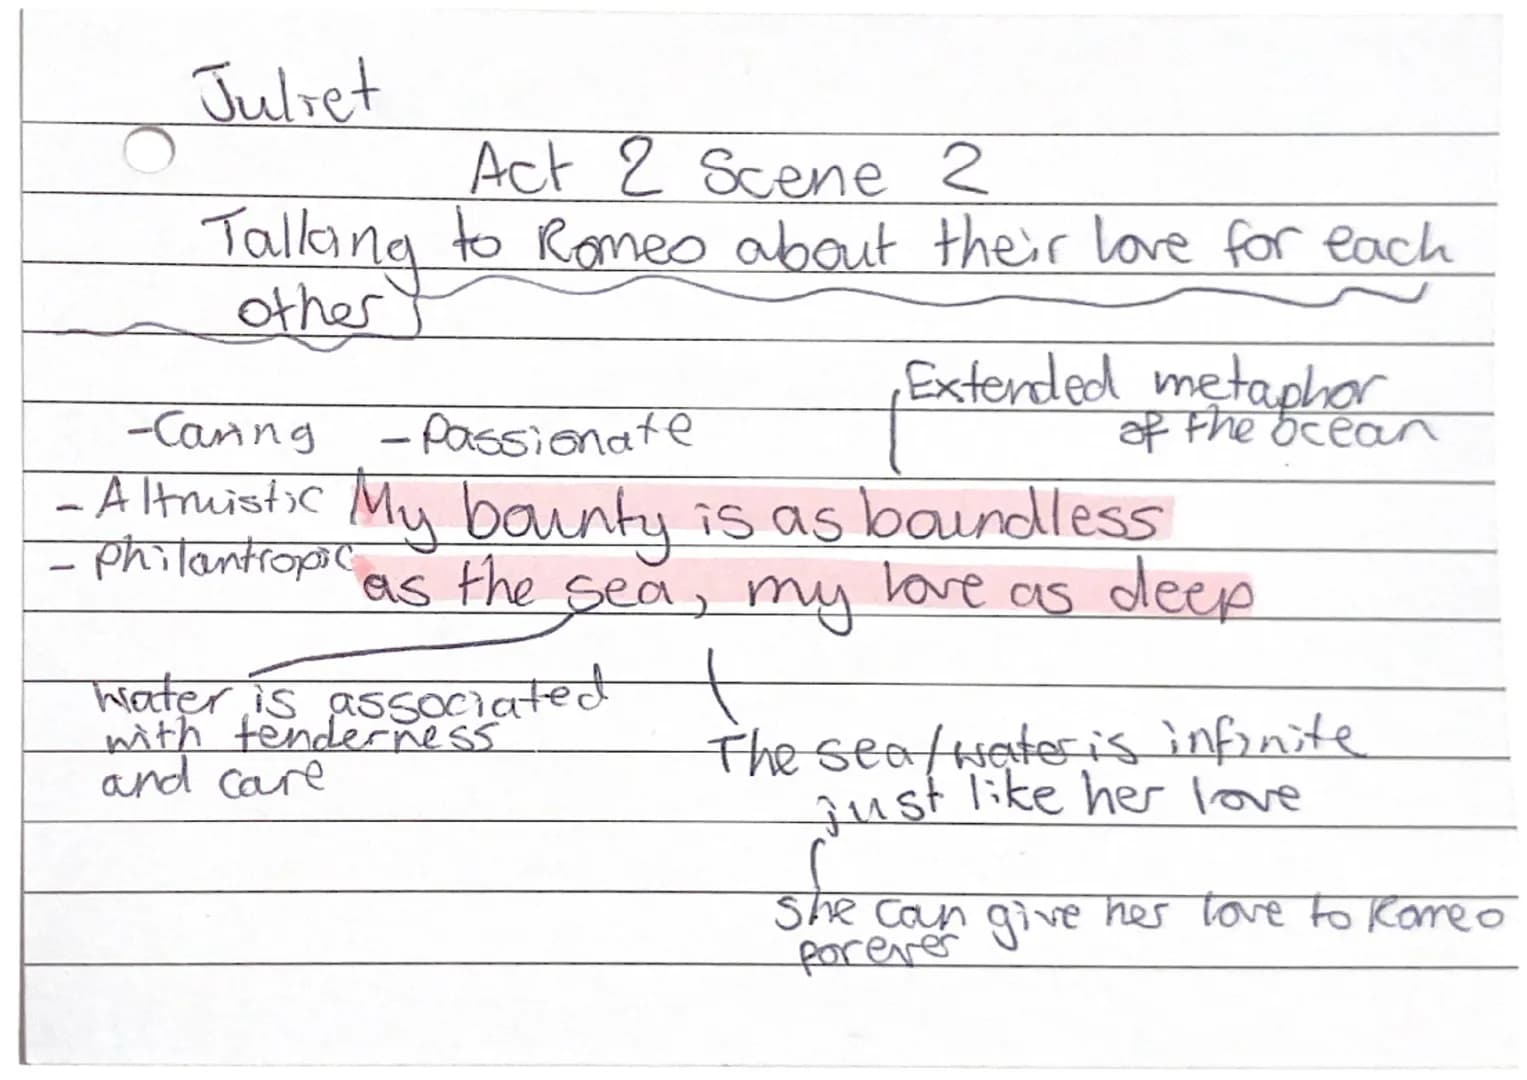 Juliet
Act 2 Scene 2
Talking to Romeo about their love for each
other
Extended metaphor
of the ocean
-Caring -Passionate
- Altruistic My bounty is as boundless
- philantropic as the sea, my love as deep
water is associated
with tenderness
and care
The sea/water is infinite
just like her love
She can give her love to Romeo
forever